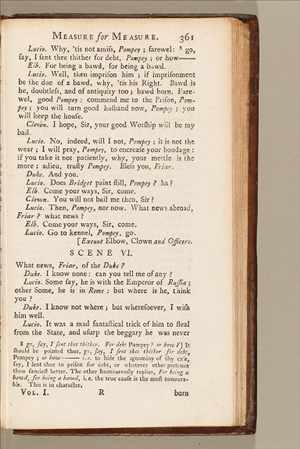 MEASURE for MEASURE. 361
Lucio. Why, 'tis not amiss, Pompey; farewel: ⁸ go,
say, I sent thee thither for debt, Pompey; or how——
Elb. For being a bawd, for being a bawd.
Lucio. Well, then imprison him; if imprisonment
be the due of a bawd, why, 'tis his Right. Bawd is
he, doubtless, and of antiquity too; bawd born. Fare-
wel, good Pompey: commend me to the Prison, Pom-
pey; you will turn good husband now, Pompey; you
will keep the house.
Clown. I hope, Sir, your good Worship will be my
bail.
Lucio. No, indeed, will I not, Pompey; it is not the
wear; I will pray, Pompey, to encrease your bondage:
if you take it not patiently, why, your mettle is the
more: adieu, trusty Pompey. Bless you, Friar.
Duke. And you.
Lucio. Does Bridget paint still, Pompey? ha?
Elb. Come your ways, Sir, come.
Clown. You will not bail me then, Sir?
Lucio. Then, Pompey, nor now. What news abroad,
Friar? what news?
Elb. Come your ways, Sir, come.
Lucio. Go to kennel, Pompey, go.
[Exeunt Elbow, Clown and Officers.
SCENE VI.
What news, Friar, of the Duke?
Duke. I know none: can you tell me of any?
Lucio. Some say, he is with the Emperor of Russia;
other Some, he is in Rome: but where is he, think
you?
Duke. I know not where; but wheresoever, I wish
him well.
Lucio. It was a mad fantastical trick of him to steal
from the State, and usurp the beggary he was never
8 go, say, I sent thee thither. For debt Pompey? or how?] It
should be pointed thus, go, say, I sent thee thither for debt,
Pompey; or how—— i.e. to hide the ignominy of thy case,
say, I sent thee to prison for debt, or whatever other pretence
thou fanciest better. The other humourously replies, For being a
bawd, for being a bawd, i.e. the true cause is the most honoura-
ble. This is in character.
VOL. I. R born